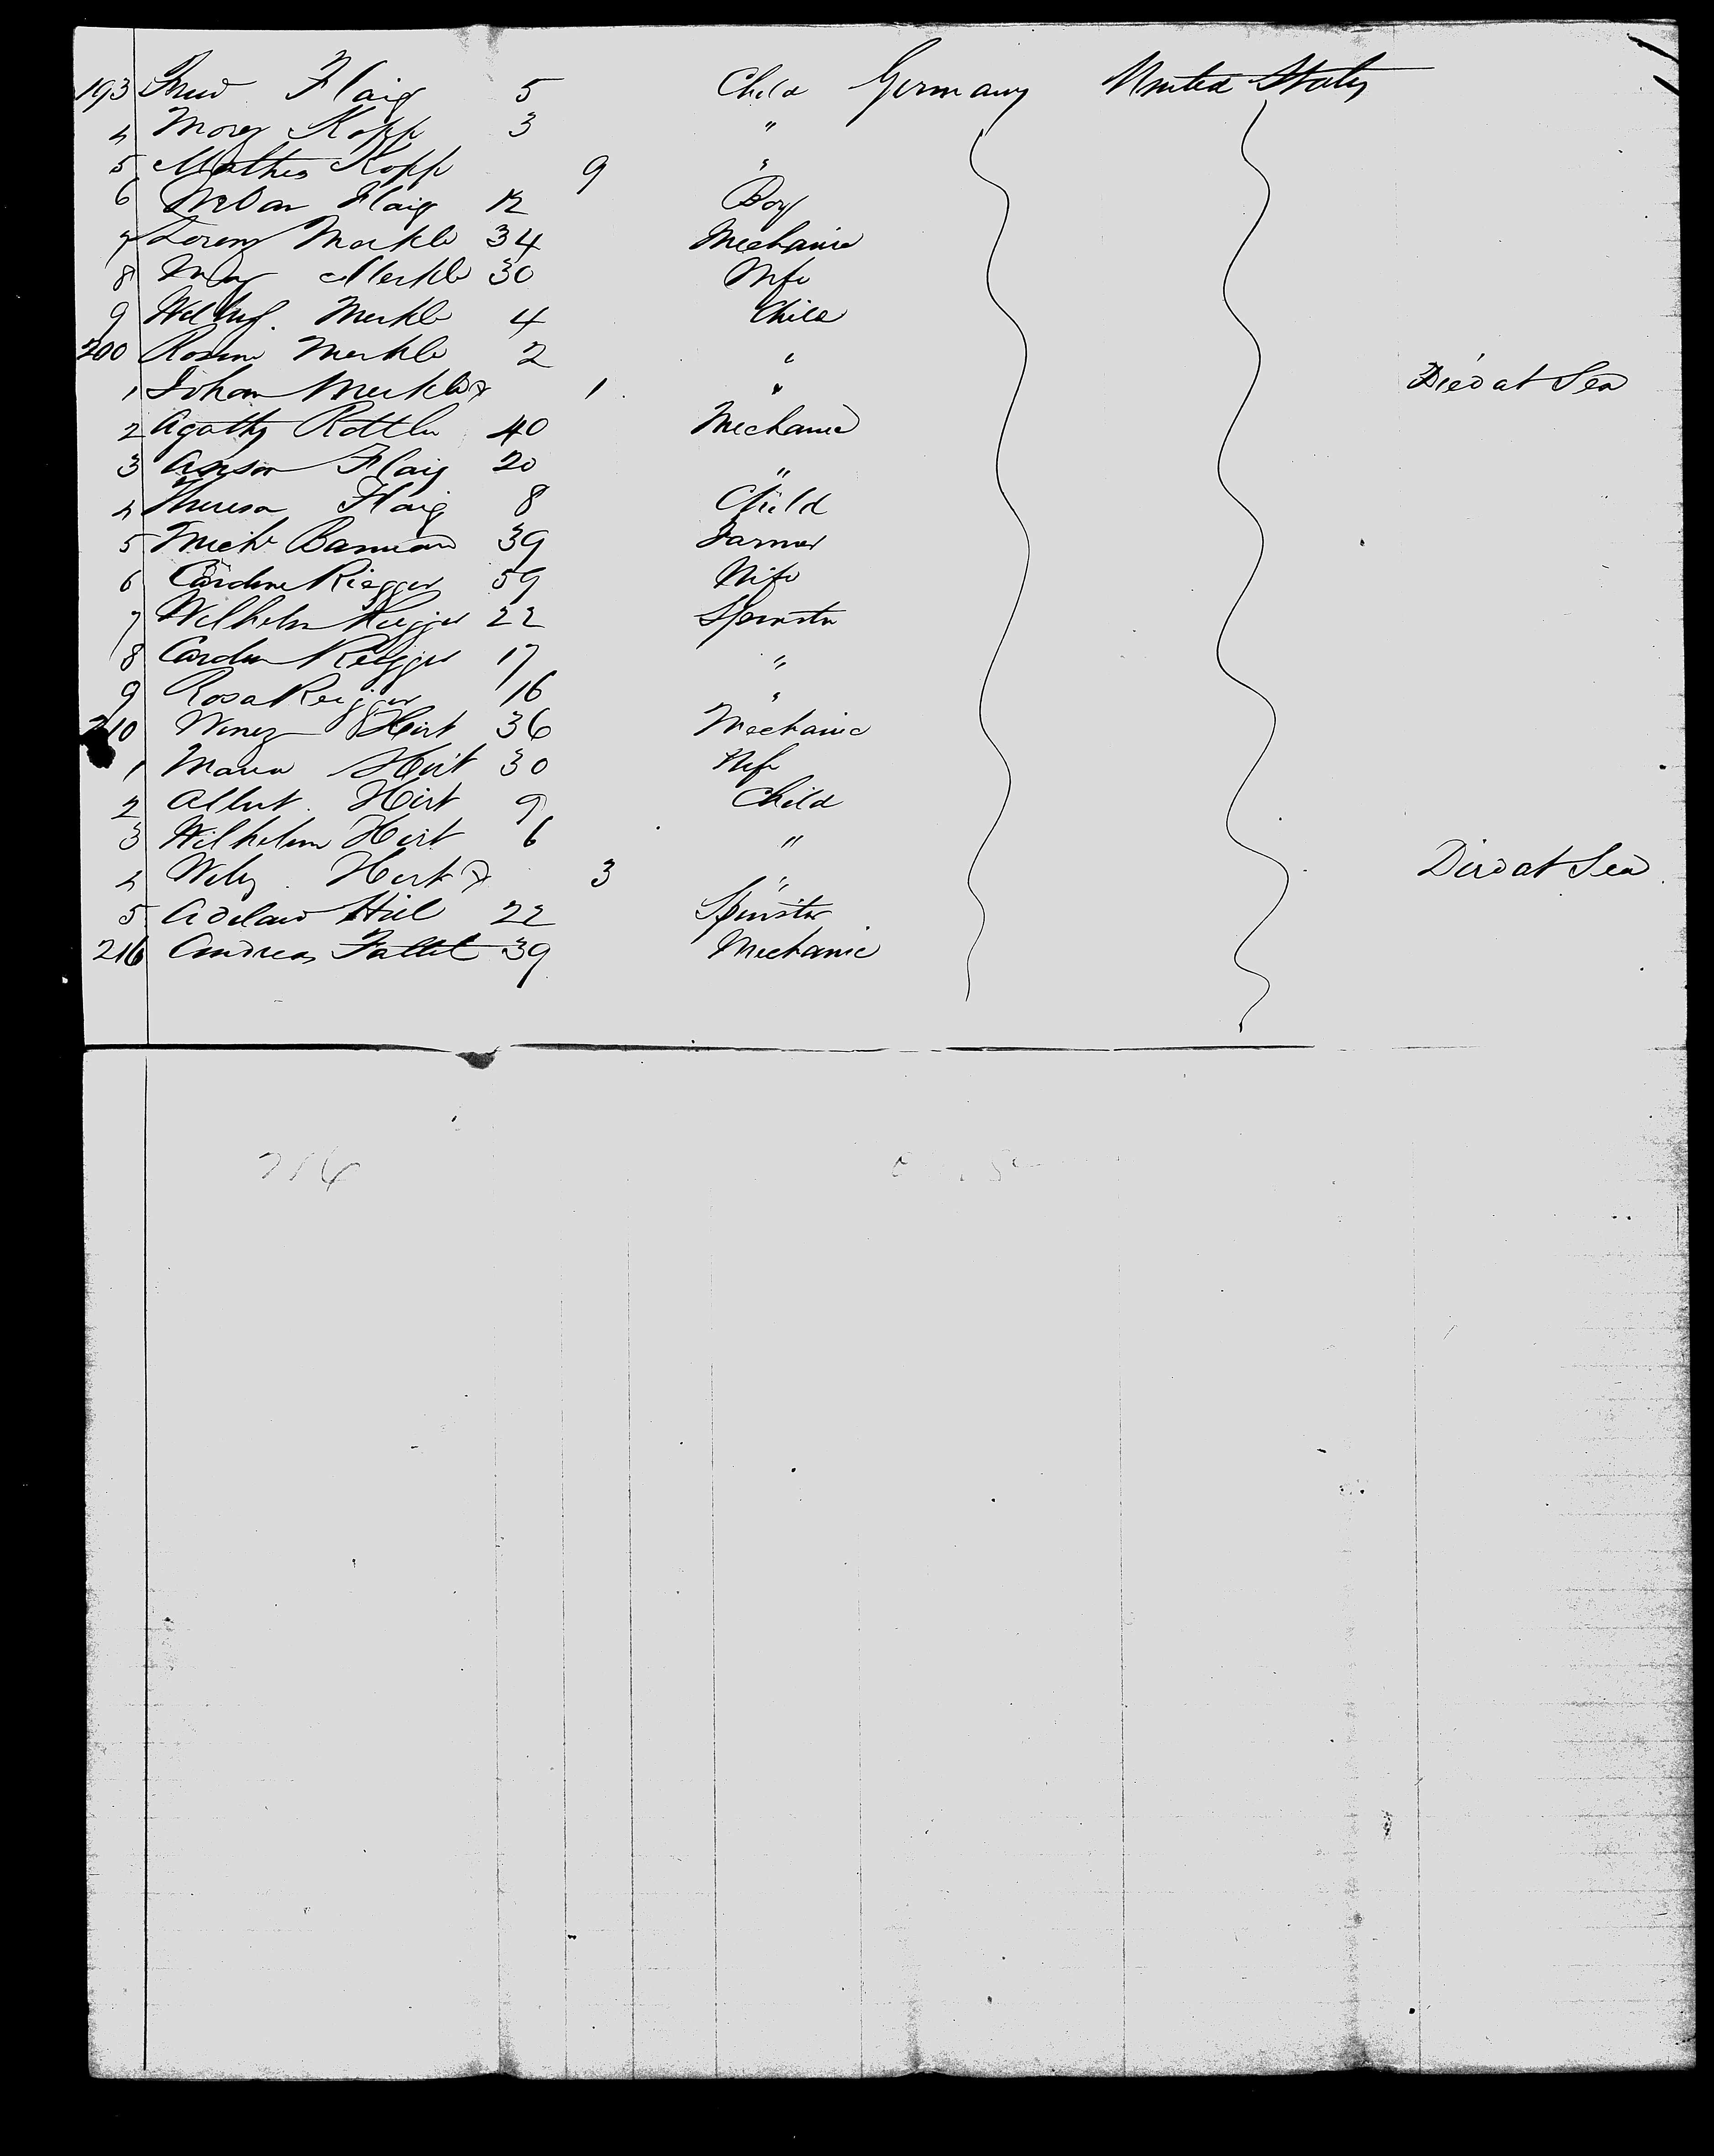 193 Flaig 5 Child Germany United States
4 Kopp 3 "
5 Mathes Kopp 9 "
6 Flaig 12 Boy
7 Lorenz Merkle 34 Mechanic
8 Mary Merkle 30 Wife
9 Merkle 4 Child
200 Rosine Merkle 2 "
1 Johan Merkle 1 " Died at Sea
2 Agatha Rottler 40 Mechanic
3 Flaig 20 "
4 Theresa Flaig 8 Child
5 Mich 39 Farmer
6 Caroline Riegger 59 Wife
7 Wilhelm Riegger 22 Spinster
8 Riegger 17 "
9 Rosa Reigger 16 "
210 Hirt 36 Mechanic
1 Maria Hirt 30 Wife
2 Albert Hirt 9 Child
3 Wilhelm Hirt 6 "
4 Hirt 3 " Died at Sea
5 22 Spinster
216 Andreas 39 Mechanic
214